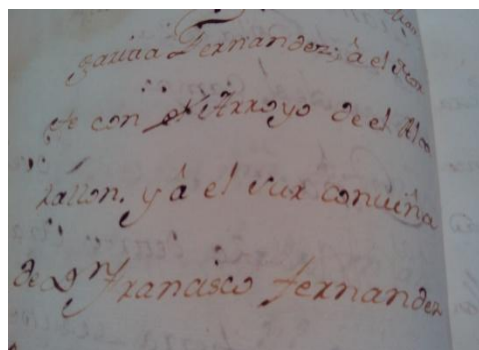 Gavina Fernandez; â el Nor
te con el Arroyo de el Alco
xallon. y â el sur con viña
de Dn Francisco Fernandez